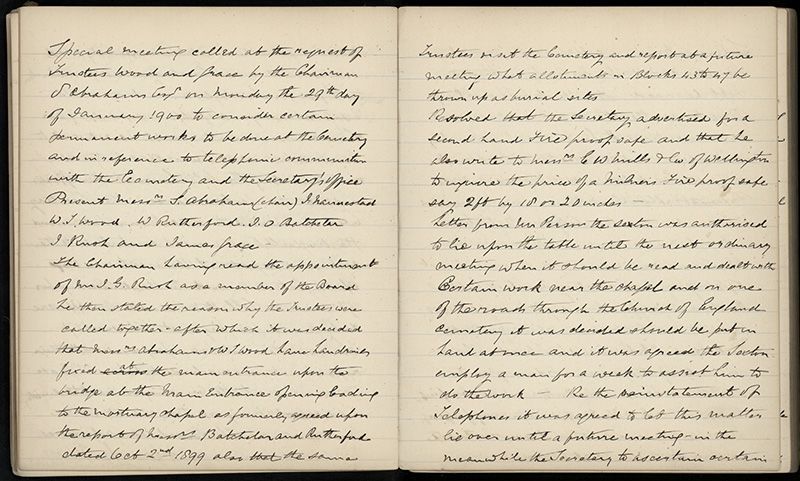 Special meeting called at the request of
Trustees Wood and Grace by the Chairman
S Abrahams Esqr on Monday the 29th day
of January 1900 to consider certain
permanent works to be done at the Cemetery
and in reference to telephonic communication
with the Cemetery and the Secretary's office
Present Messrs S. Abrahams (chair) J
W. J. Wood. W Rutherford. J. O Batchelar
J Rush and James Grace
The Chairman having read the appointment
of Mr J. G. Rush as a member of the Board
he then stated the reason why the Trustees were
called together - after which it was decided
that Messrs Abrahams & W J Wood have handrails
fixed across at the main entrance upon the
bridge at the Main Entrance opening leading
to the mortuary chapel as formerly agreed upon
the report of Messrs Batchelar and Rutherford
dated Oct 2nd 1899 also that the same
Trustees visit the Cemetery and report at a future
meeting what allotments in Blocks 43 to 47 be
thrown up as burial sites
Resolved that the Secretary advertised for a
second hand Fire proof safe and that he
also write to Messrs E W Mills & Co of Wellington
to inquire the price of a Milners Fire proof safe
say 2ft by 18 or 20 inches —
Letter from Mr Person the sexton was authorised
to lie upon the table until the next ordinary
meeting when it should be read and dealt with
Certain work near the chapel and on one
of the roads through the Church of England
cemetery it was decided should be put in
hand at once and it was agreed the Sexton
employ a man for a week to assist him to
do the work — Re the reinstatement of
Telephones it was agreed to let this matter
lie over until a future meeting - in the
meanwhile the Secretary to ascertain certain